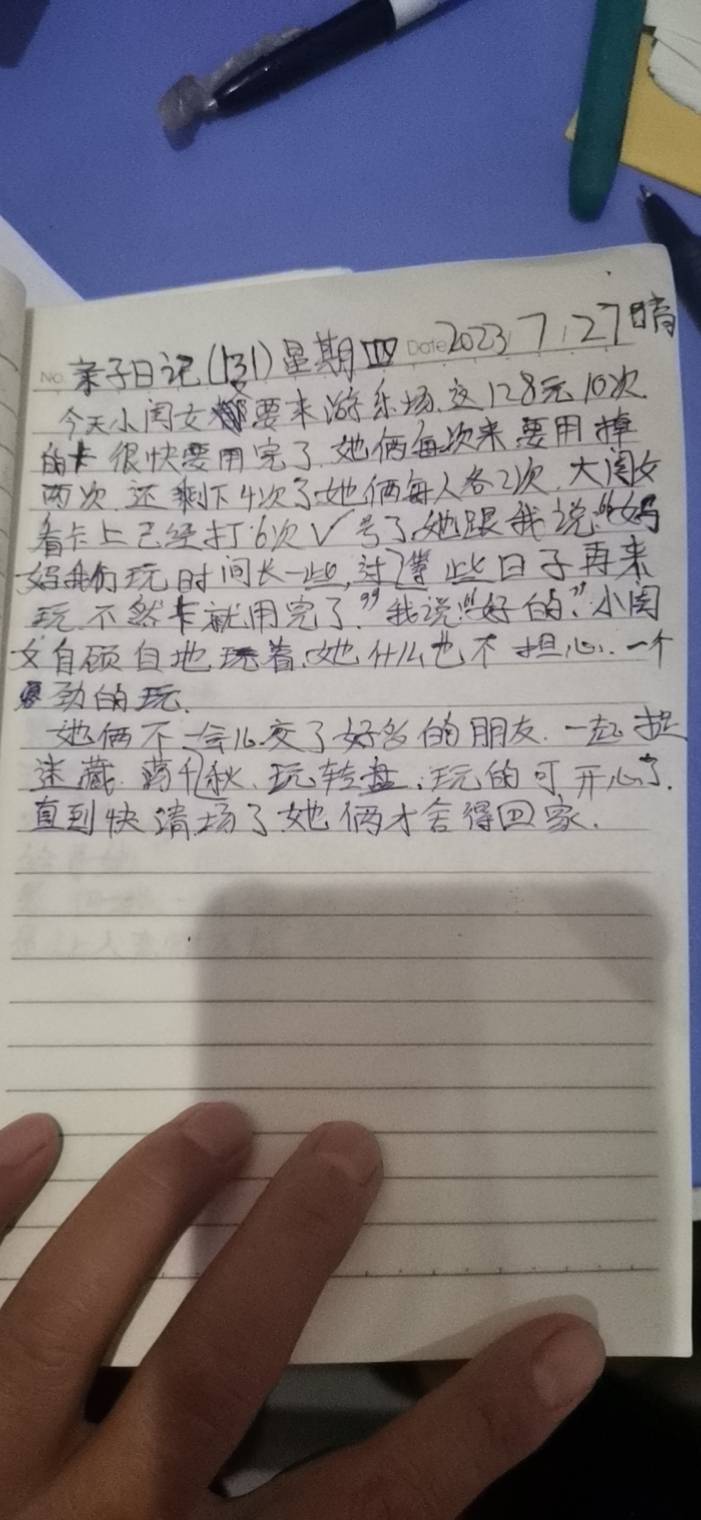 No. 亲子日记(131)星期四 Date 2023.7.27 晴
今天小闺女要来游乐场.这128元10次
的卡很快要用完了.她俩每次来要用掉
两次.还剩下4次了.她俩每人各2次.大闺女
看卡上已经打6次√号了.她跟我说:“妈
妈我们玩时间长一些,过些日子再来
玩.不然卡就用完了.”我说:“好的.”小闺
女自顾自地玩着.她什么也不担心.一个
劲的玩.
她俩不一会儿交了好多的朋友.一起捉
迷藏.荡秋.玩转盘.玩的可开心了.
直到快清场了她俩才舍得回家.